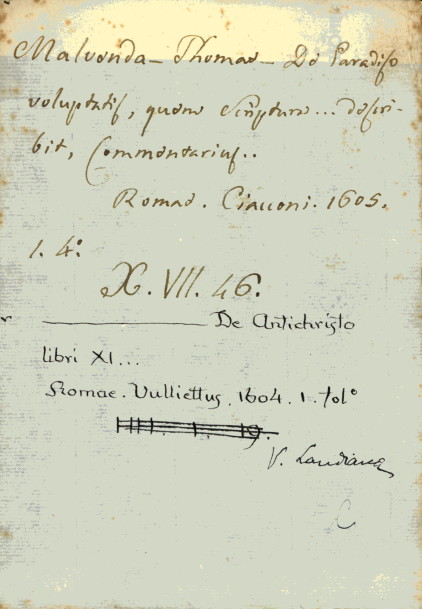 Malvenda - Thomae - De Paradiso
voluptatis, quem Scriptura... descri-
bit, Commentarius..
Romae. Ciacconi. 1605.
1. 4.º
X. VII. 46.
De Antichristo
libri XI...
Romae. Vulliettus. 1604. 1. folº
V. Landiana
C